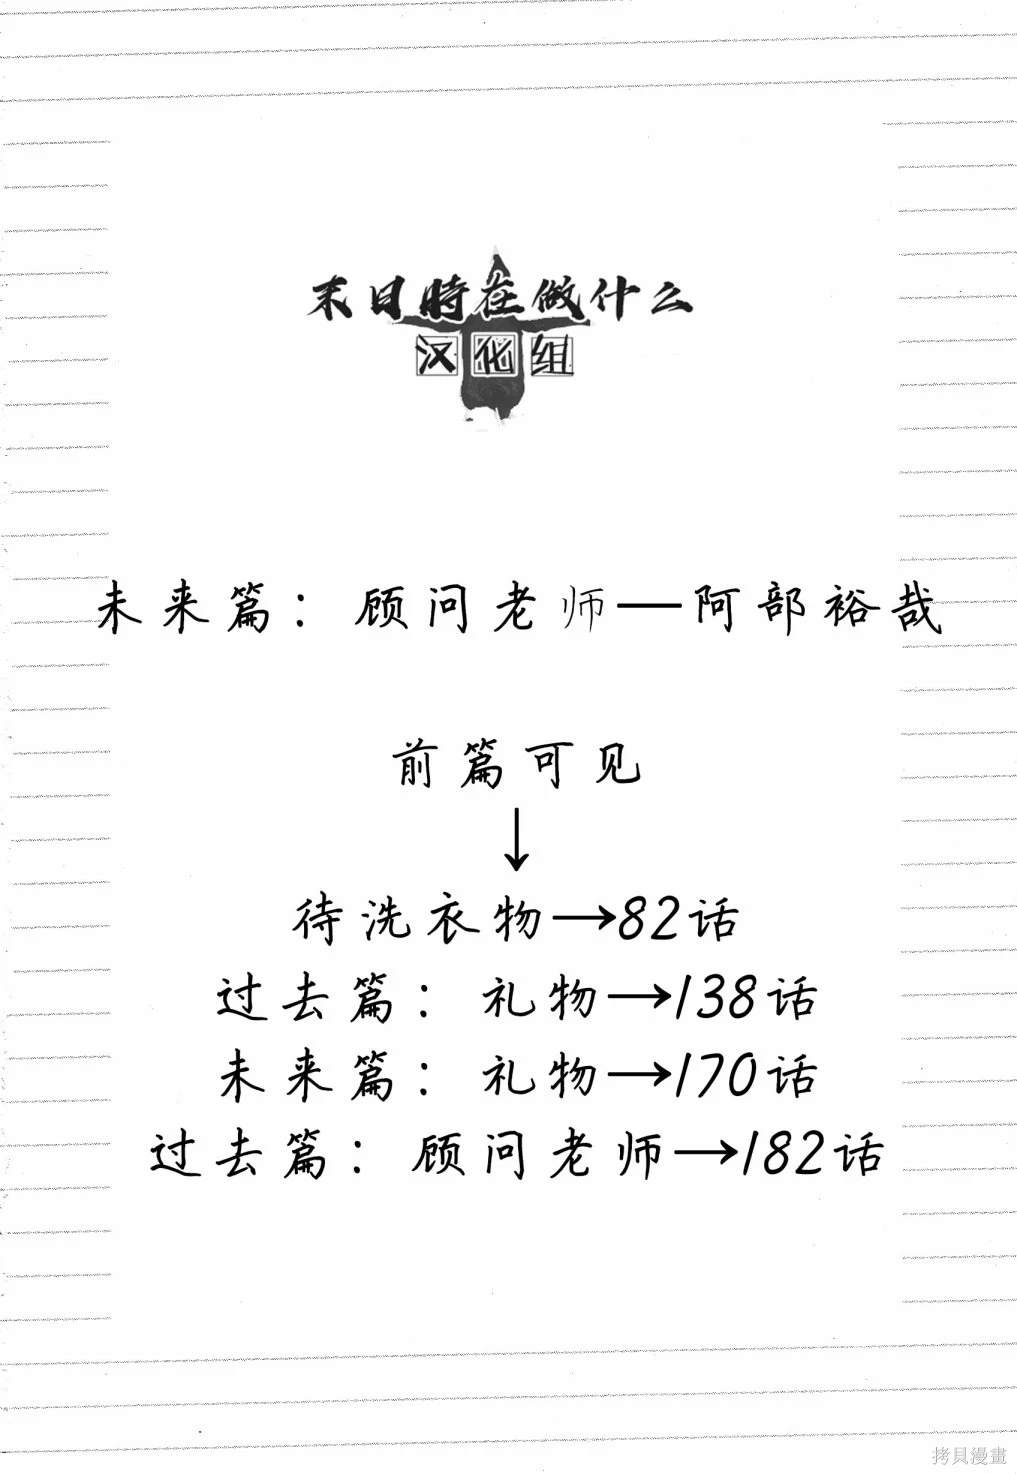 末日時在做什么
汉化组
未来篇：顾问老师—阿部裕哉
前篇可见
↓
待洗衣物→82话
过去篇：礼物→138话
未来篇：礼物→170话
过去篇：顾问老师→182话
拷貝漫畫